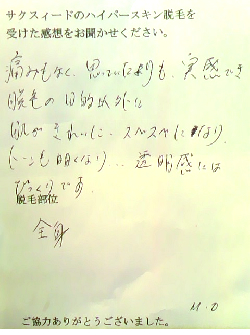 サクスィードのハイパースキン脱毛を
受けた感想をお聞かせください。
痛みもなく、思っていたよりも、実感でき
脱毛の目的以外に
肌がきれいに、スベスベになり、
トーンも明くなり、、透明感には
びっくりです。
脱毛部位
全身
M.O
ご協力ありがとうございました。